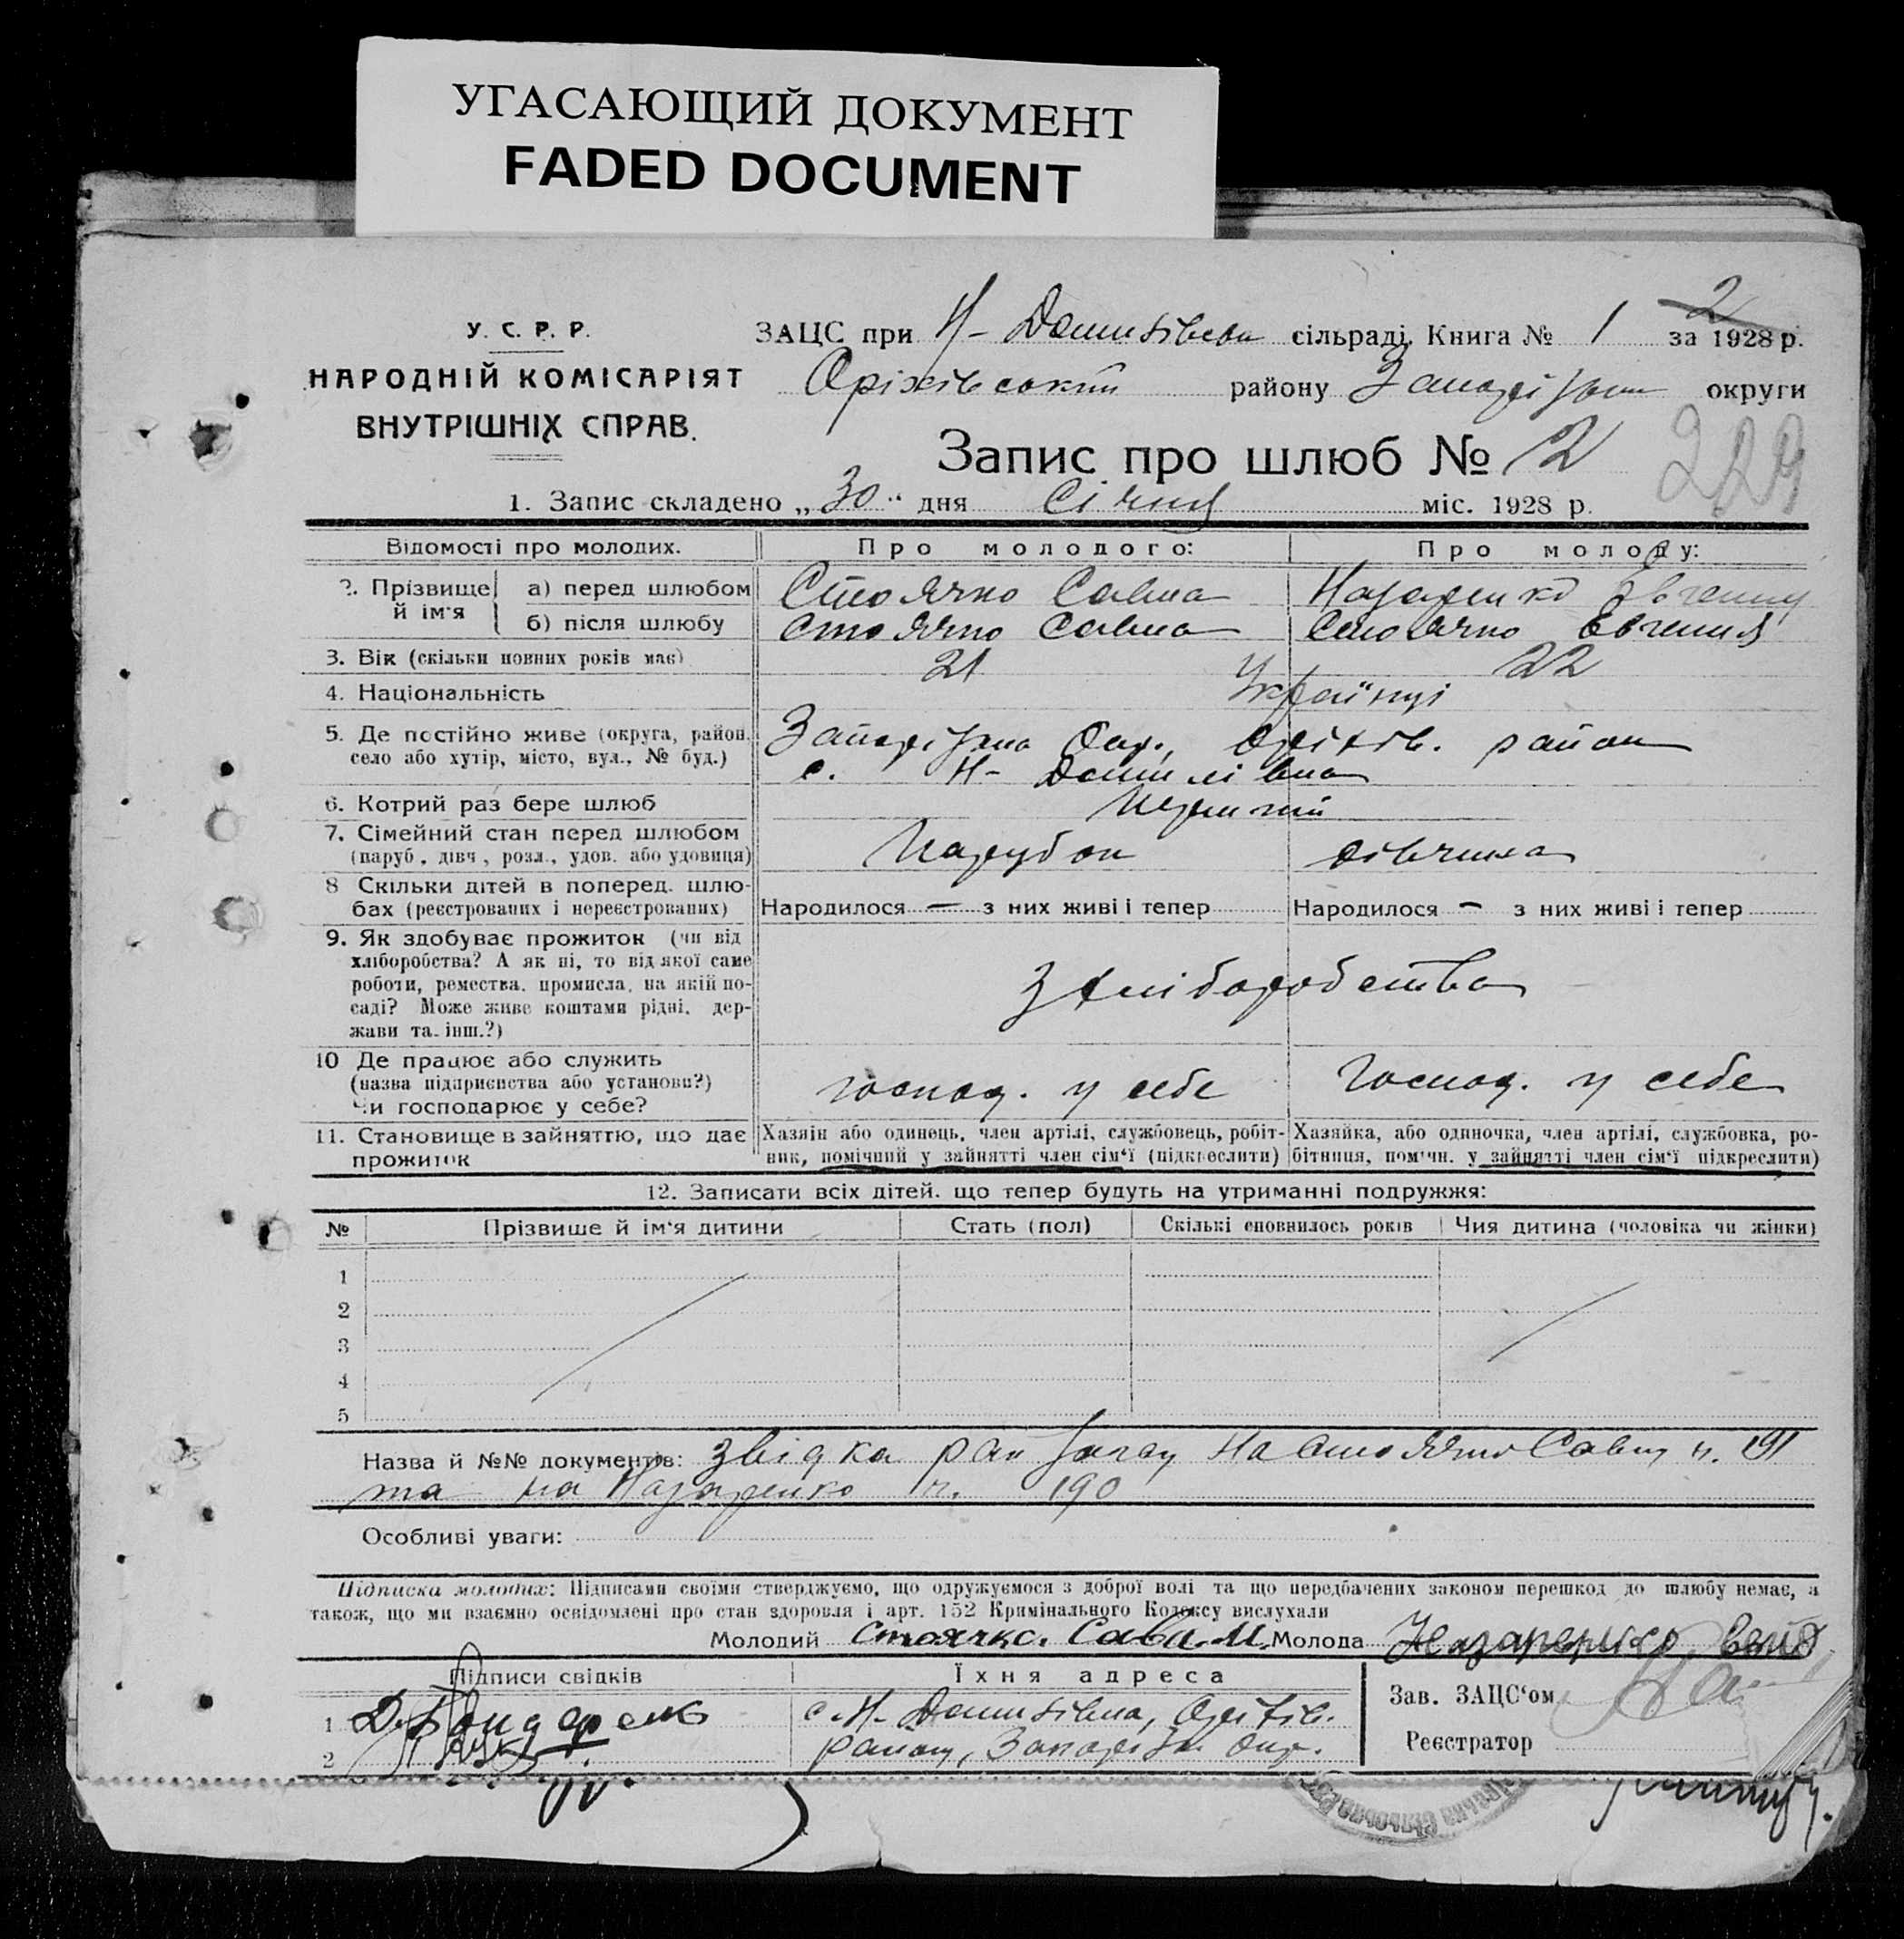 УГАСАЮЩИЙ ДОКУМЕНТ
FADED DOCUMENT
2
У. С. Р. Р.
НАРОДНІЙ КОМІСАРІЯТ
ВНУТРІШНІХ СПРАВ.
ЗАЦС при Н- сільраді. Книга № 1 за 1928 р.
Оріхівський району округи
229
Запис про шлюб № 2
1. Запис складено „ 30 “ дня Січня міс. 1928 р.
Відомості про молодих. Про молодого: Про молоду:
2. Прізвище й ім'я а) перед шлюбом Стоячко Савка Назаренко Евгения
б) після шлюбу Стоячко Савка Стоячко Евгения
3. Вік (скільки повних років має) 21 22
4. Національність Українці
5. Де постійно живе (округа, район, Запоріжка Окр., Оріхів. район
село або хутір, місто, вул., № буд.) с. Н- Данилівка
6. Котрий раз бере шлюб Первий
7. Сімейний стан перед шлюбом Парубок дівчина
(паруб., дівч., розл., удов. або удовиця)
8 Скільки дітей в поперед. шлю-
бах (реєстрованих і нереєстрованих) Народилося — з них живі і тепер Народилося - з них живі і тепер
9. Як здобуває прожиток (чи від
хліборобства? А як ні, то від якої саме
роботи, ремества, промисла, на якій по-
саді? Може живе коштами рідні, дер-
жави та. інш.?)
З хліборобства
10 Де працює або служить
(назва підприємства або установи?)
Чи господарює у себе?
господ. у себе Господ. у себе
11. Становище в зайняттю, що дає Хазяїн або одинець, член артілі, службовець, робіт- Хазяйка, або одиночка, член артілі, службовка, ро-
прожиток ник, помічний у зайнятті член сім'ї (підкреслити) бітниця, поміч. у зайнятті член сім'ї підкреслити)
12. Записати всіх дітей, що тепер будуть на утриманні подружжя:
№ Прізвище й ім'я дитини Стать (пол) Скількі сповнилось років Чия дитина (чоловіка чи жінки)
1
2
3
4
5
Назва й №№ документів: звідка рай на Стоячко Савку ч. 191
та на Назаренко ч. 190
Особливі уваги:
Підписка молодих: Підписами своїми стверджуємо, що одружуємося з доброї волі та що передбачених законом перешкод до шлюбу немає, а
також, що ми взаємно освідомлені про стан здоровля і арт. 152 Кримінального Кодексу вислухали
Молодий Стоячко. Сава. М. Молода Назаренко
Підписи свідків Їхня адреса
Зав. ЗАЦС'ом
1 Д. Бондаренко с. Н- Данилівка, Оріхів.
2 району, Запоріж. Окр.
Реєстратор